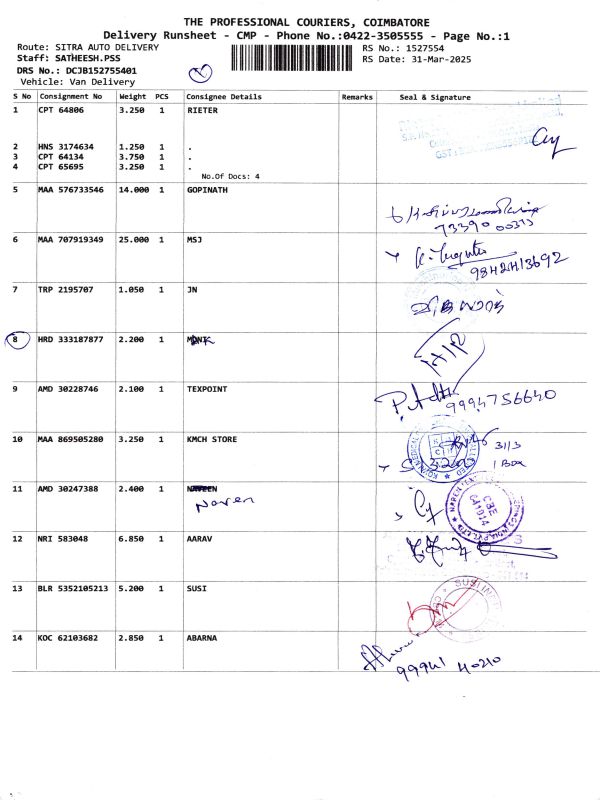 THE PROFESSIONAL COURIERS, COIMBATORE
Delivery Runsheet - CMP - Phone No.:0422-3505555 - Page No.:1
Route: SITRA AUTO DELIVERY
RS No.: 1527554
Staff: SATHEESH.PSS
RS Date: 31-Mar-2025
DRS No.: DCJB152755401
Vehicle: Van Delivery
S No Consignment No Weight PCS Consignee Details Remarks Seal & Signature
1 CPT 64806 3.250 1 RIETER
2 HNS 3174634 1.250 1 .
3 CPT 64134 3.750 1 .
4 CPT 65695 3.250 1 .
No.Of Docs: 4
5 MAA 576733546 14.000 1 GOPINATH
6 MAA 707919349 25.000 1 MSJ
9842413692
7 TRP 2195707 1.050 1 JN
8 HRD 333187877 2.200 1
9 AMD 30228746 2.100 1 TEXPOINT
9994756640
10 MAA 869505280 3.250 1 KMCH STORE
31/3
1 Box
11 AMD 30247388 2.400 1 NAVEEN
Naren
CBE
641014
12 NRI 583048 6.850 1 AARAV
13 BLR 5352105213 5.200 1 SUSI
14 KOC 62103682 2.850 1 ABARNA
99941 40210